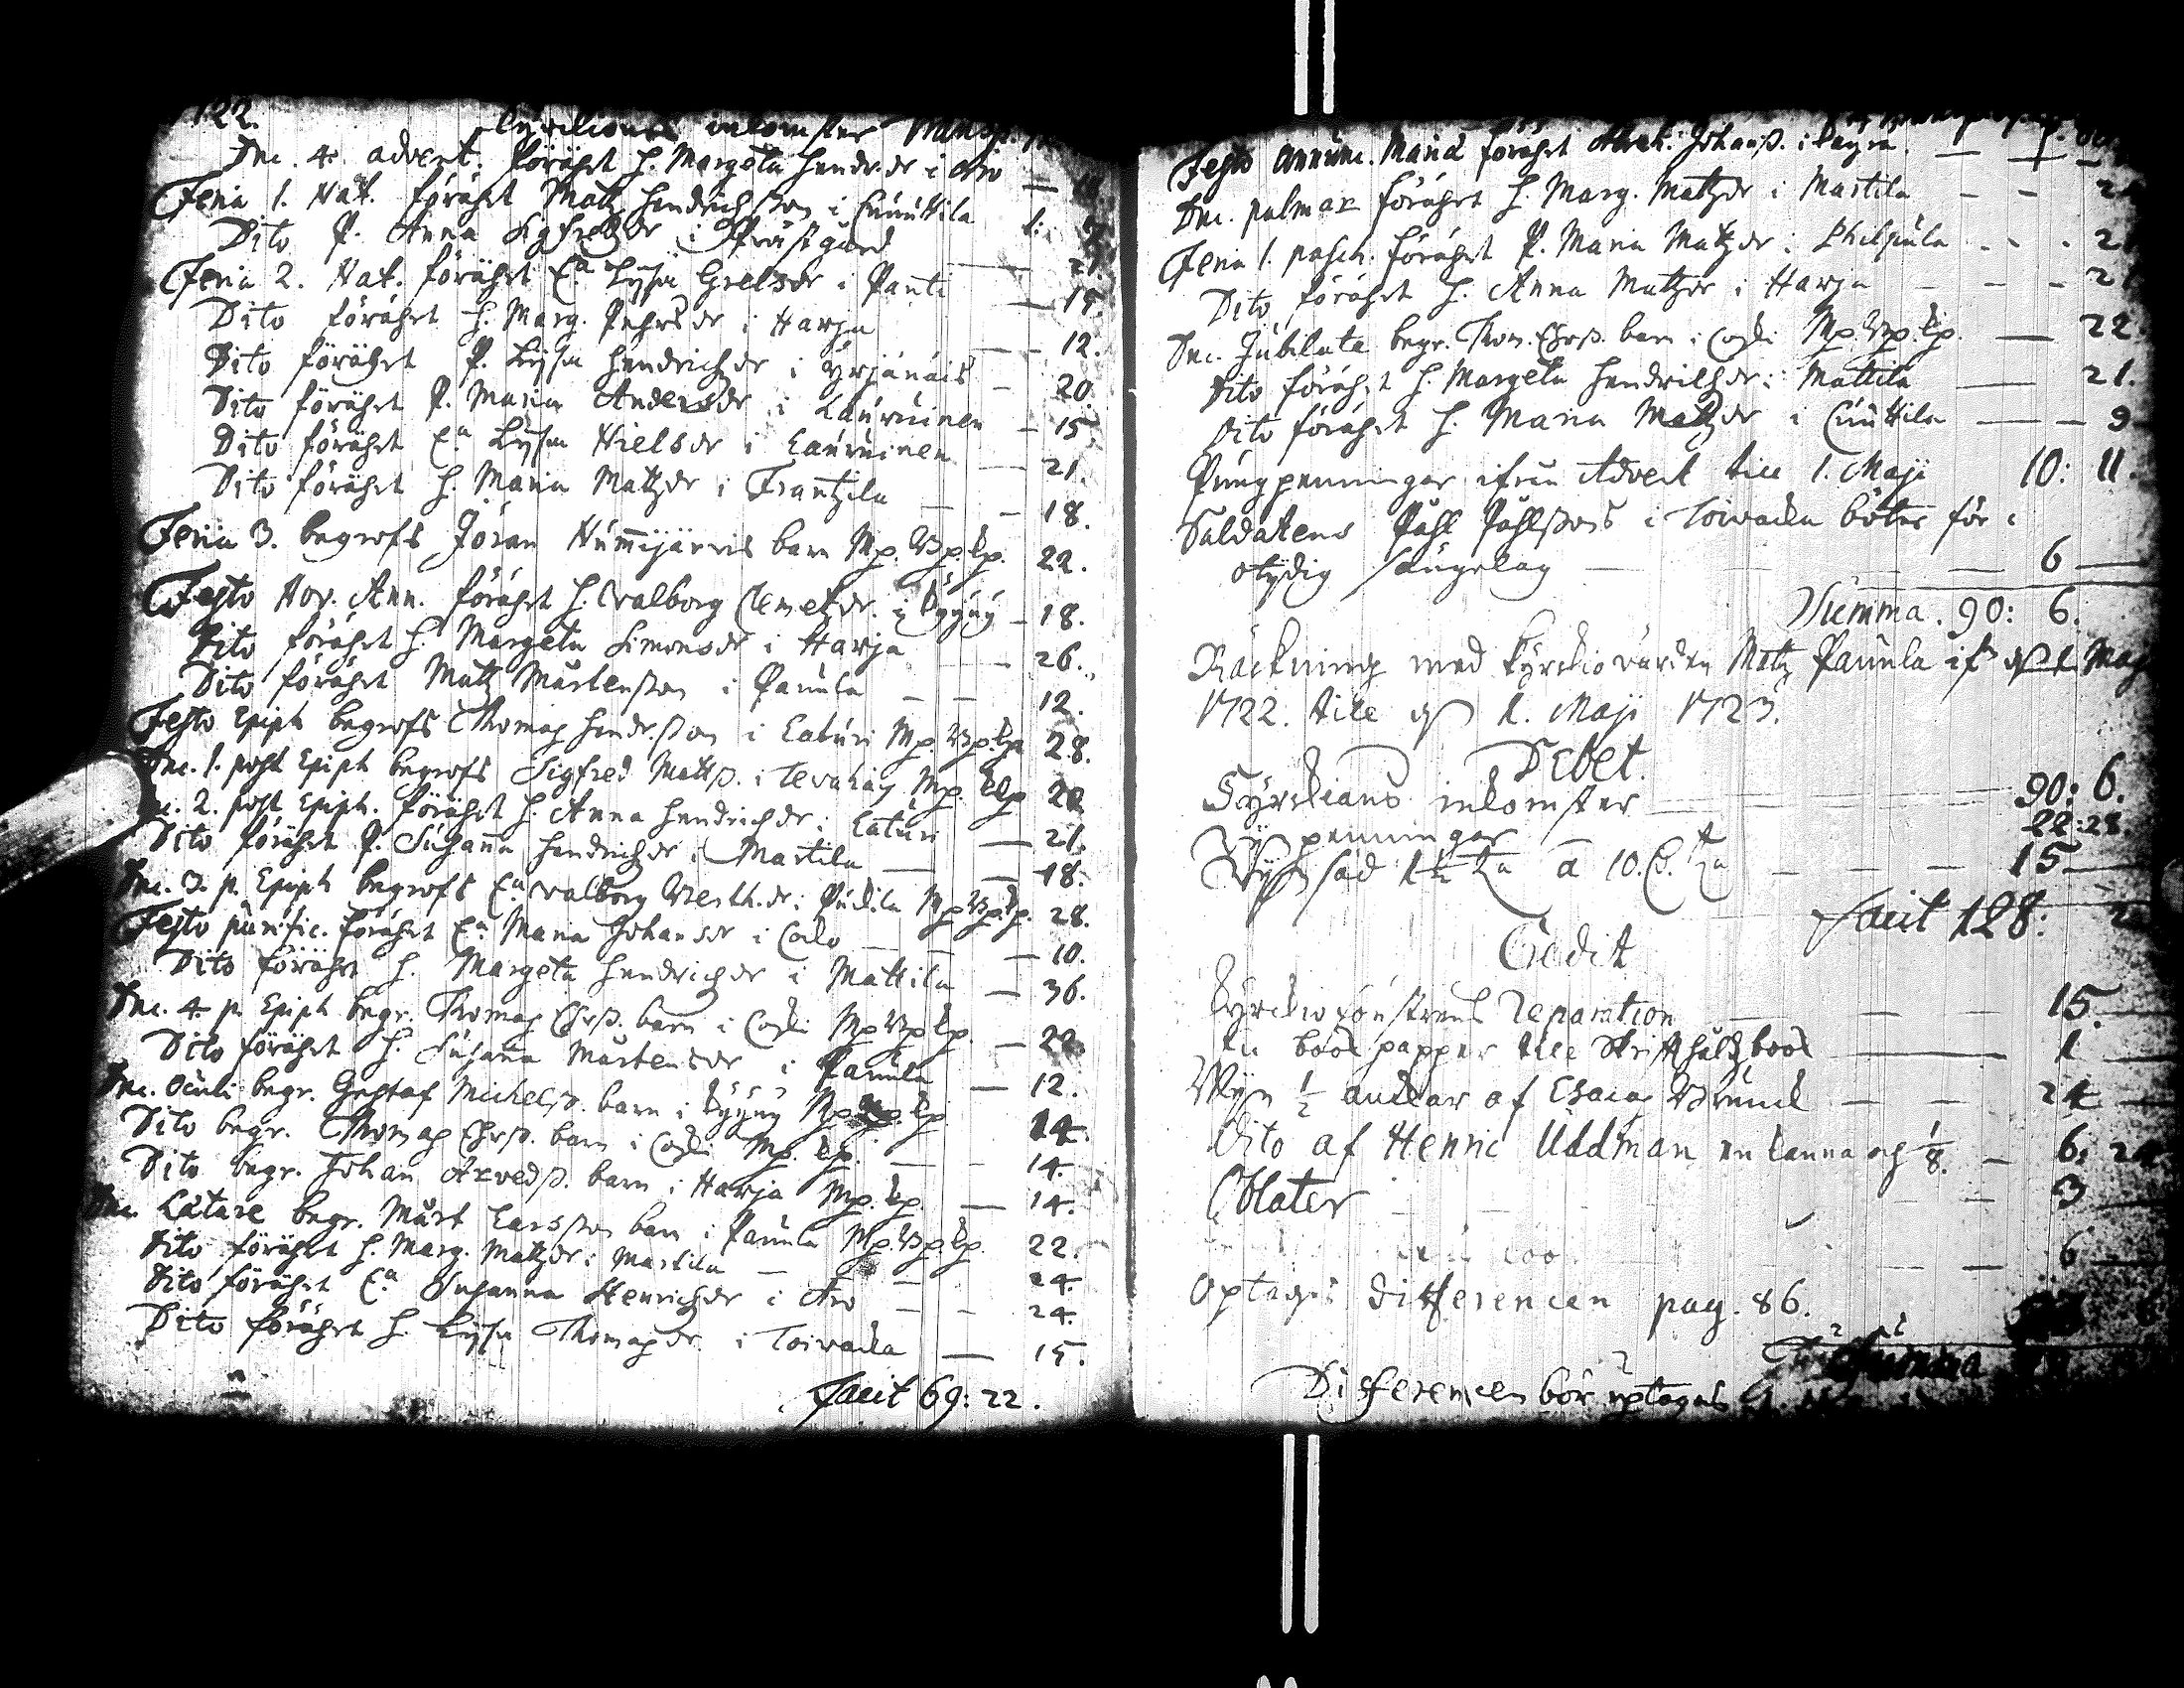 122.
Kyrckiones inkomster Transp.
Dnc. 4. advent. förährt H. Margeta Hendr.dr i Aro — 18
Feria 1. Nat. förährt Matz Hendrichsson i Cnuuttila 1:
Dito P. Anna Sigfredzdr i Prästgård — 21.
Feria 2. Nat. förährt E.a Lysa Grelsdr i Panti — 15.
Dito förährt H. Marg. Pehrsdr i Harja — 12.
Dito förährt P. Lysa Hendrichzdr i Yrjänäis — 20.
Dito förährt P. Maria Andersdr i Lauruinen — 15.
Dito förährt E.a Lysa Nielsdr i Lauruinen — 21.
Dito förährt H. Maria Matzdr i Frantzila — 18.
Feria 3. begrofs Jöran Hummijärvis barn Mp. Bp. Kp. 22.
Festo Nov. Ann. förährt H. Walborg Clemetzdr i Kyyny — 18.
Dito förährt H. Margeta Simonsdr i Harja — 26.
Dito förährt Matz Mårtensson i Paunla — — 12.
Festo Epiph begrofs Thomas Hendrsson i Laturi Mp. Bp. Kp 28.
Dnc. 1. post Epiph begrofs Sigfred Matss. i Tevahäy Mp. Kp 20
Dnc. 2. post Epiph. förährt H. Anna Hendrichzdr i Laturi — 21.
Dito förährt P. Susanna Hendrichzdr i Martila — 18.
Dnc. 3. p. Epiph begrofs E.a Walborg Berth.dr i Pudila Mp Bp. Kp. 28.
Festo purific. förährt E.a Maria Johansdr i Corko — 10.
Dito förährt H. Margeta Hendrichzdr i Mattila — 36.
Dnc. 4 p. Epiph begr. Thomas Chrss. barn i Coski Mp Bp Kp. — 22.
Dito förährt H. Susanna Mårtensdr i Paunla — 12.
Dnc. Oculi begr. Gustaf Michelss. barn i Kyyny Mp. Kp. 14.
Dito begr. Thomas Chrss. barn i Coski Mp. Kp. — 14.
Dito begr. Johan Arvedss. barn i Harja Mp. Kp. — 14.
Dnc. Lætare begr. Mårt Larsson barn i Paunla Mp. Bp. Kp. 22.
Dito förährt H. Marg. Matzdr i Martila — 24.
Dito förährt E.a Susanna Henrichzdr i Aro — 24.
Dito förährt H. Lysa Thomasdr i Toivacka — 15.
Facit 69: 22.
Festo Annunc. Mariæ förährt Johanss. i
Dnc. palmar förährt H. Marg. Matzdr i Martila — —
Feria 1. pasch. förährt P. Maria Matzdr i Philpula - - - 21
Dito förährt H. Anna Matzdr i Harja — — — 21
Dnc. Jubilate begr. Thom. Chrss. barn i Coski Mp. Bp. Kp. — 22.
Dito förährt H. Margeta Hendrichzdr i Mattila — 21.
Dito förährt H. Maria Matzdr i Cnuuttila — — 9
Pungpenningar ifrån Advent till 1. Maji 10: 11.
Soldatens Påhl Påhlssons i Toivacka böter för
otydig sängelag — — 6 —
Summa. 90: 6.
Räckning med Kyrckiovärden Matz Paunla ifr. d. 1 Maij
1722. till d. 1. Maji 1723.
Debet.
Kyrckians inkomster — 90: 6.
penningar 22:28.
säd 1½ Ta à 10. — — — 15 —
Facit 128:
Credit
Kyrckiofönstrens reparation — — — 15.
En book papper till Skrifthåldz book — 1
Wyn ½ anckar af Esaias Brunck — — 24
Dito af Henric Uddman en kanna och ⅛. — 6: 24
Oblater — — — 3
6
Optages differencen pag. 86.
Summa
Differencen bör uptagas